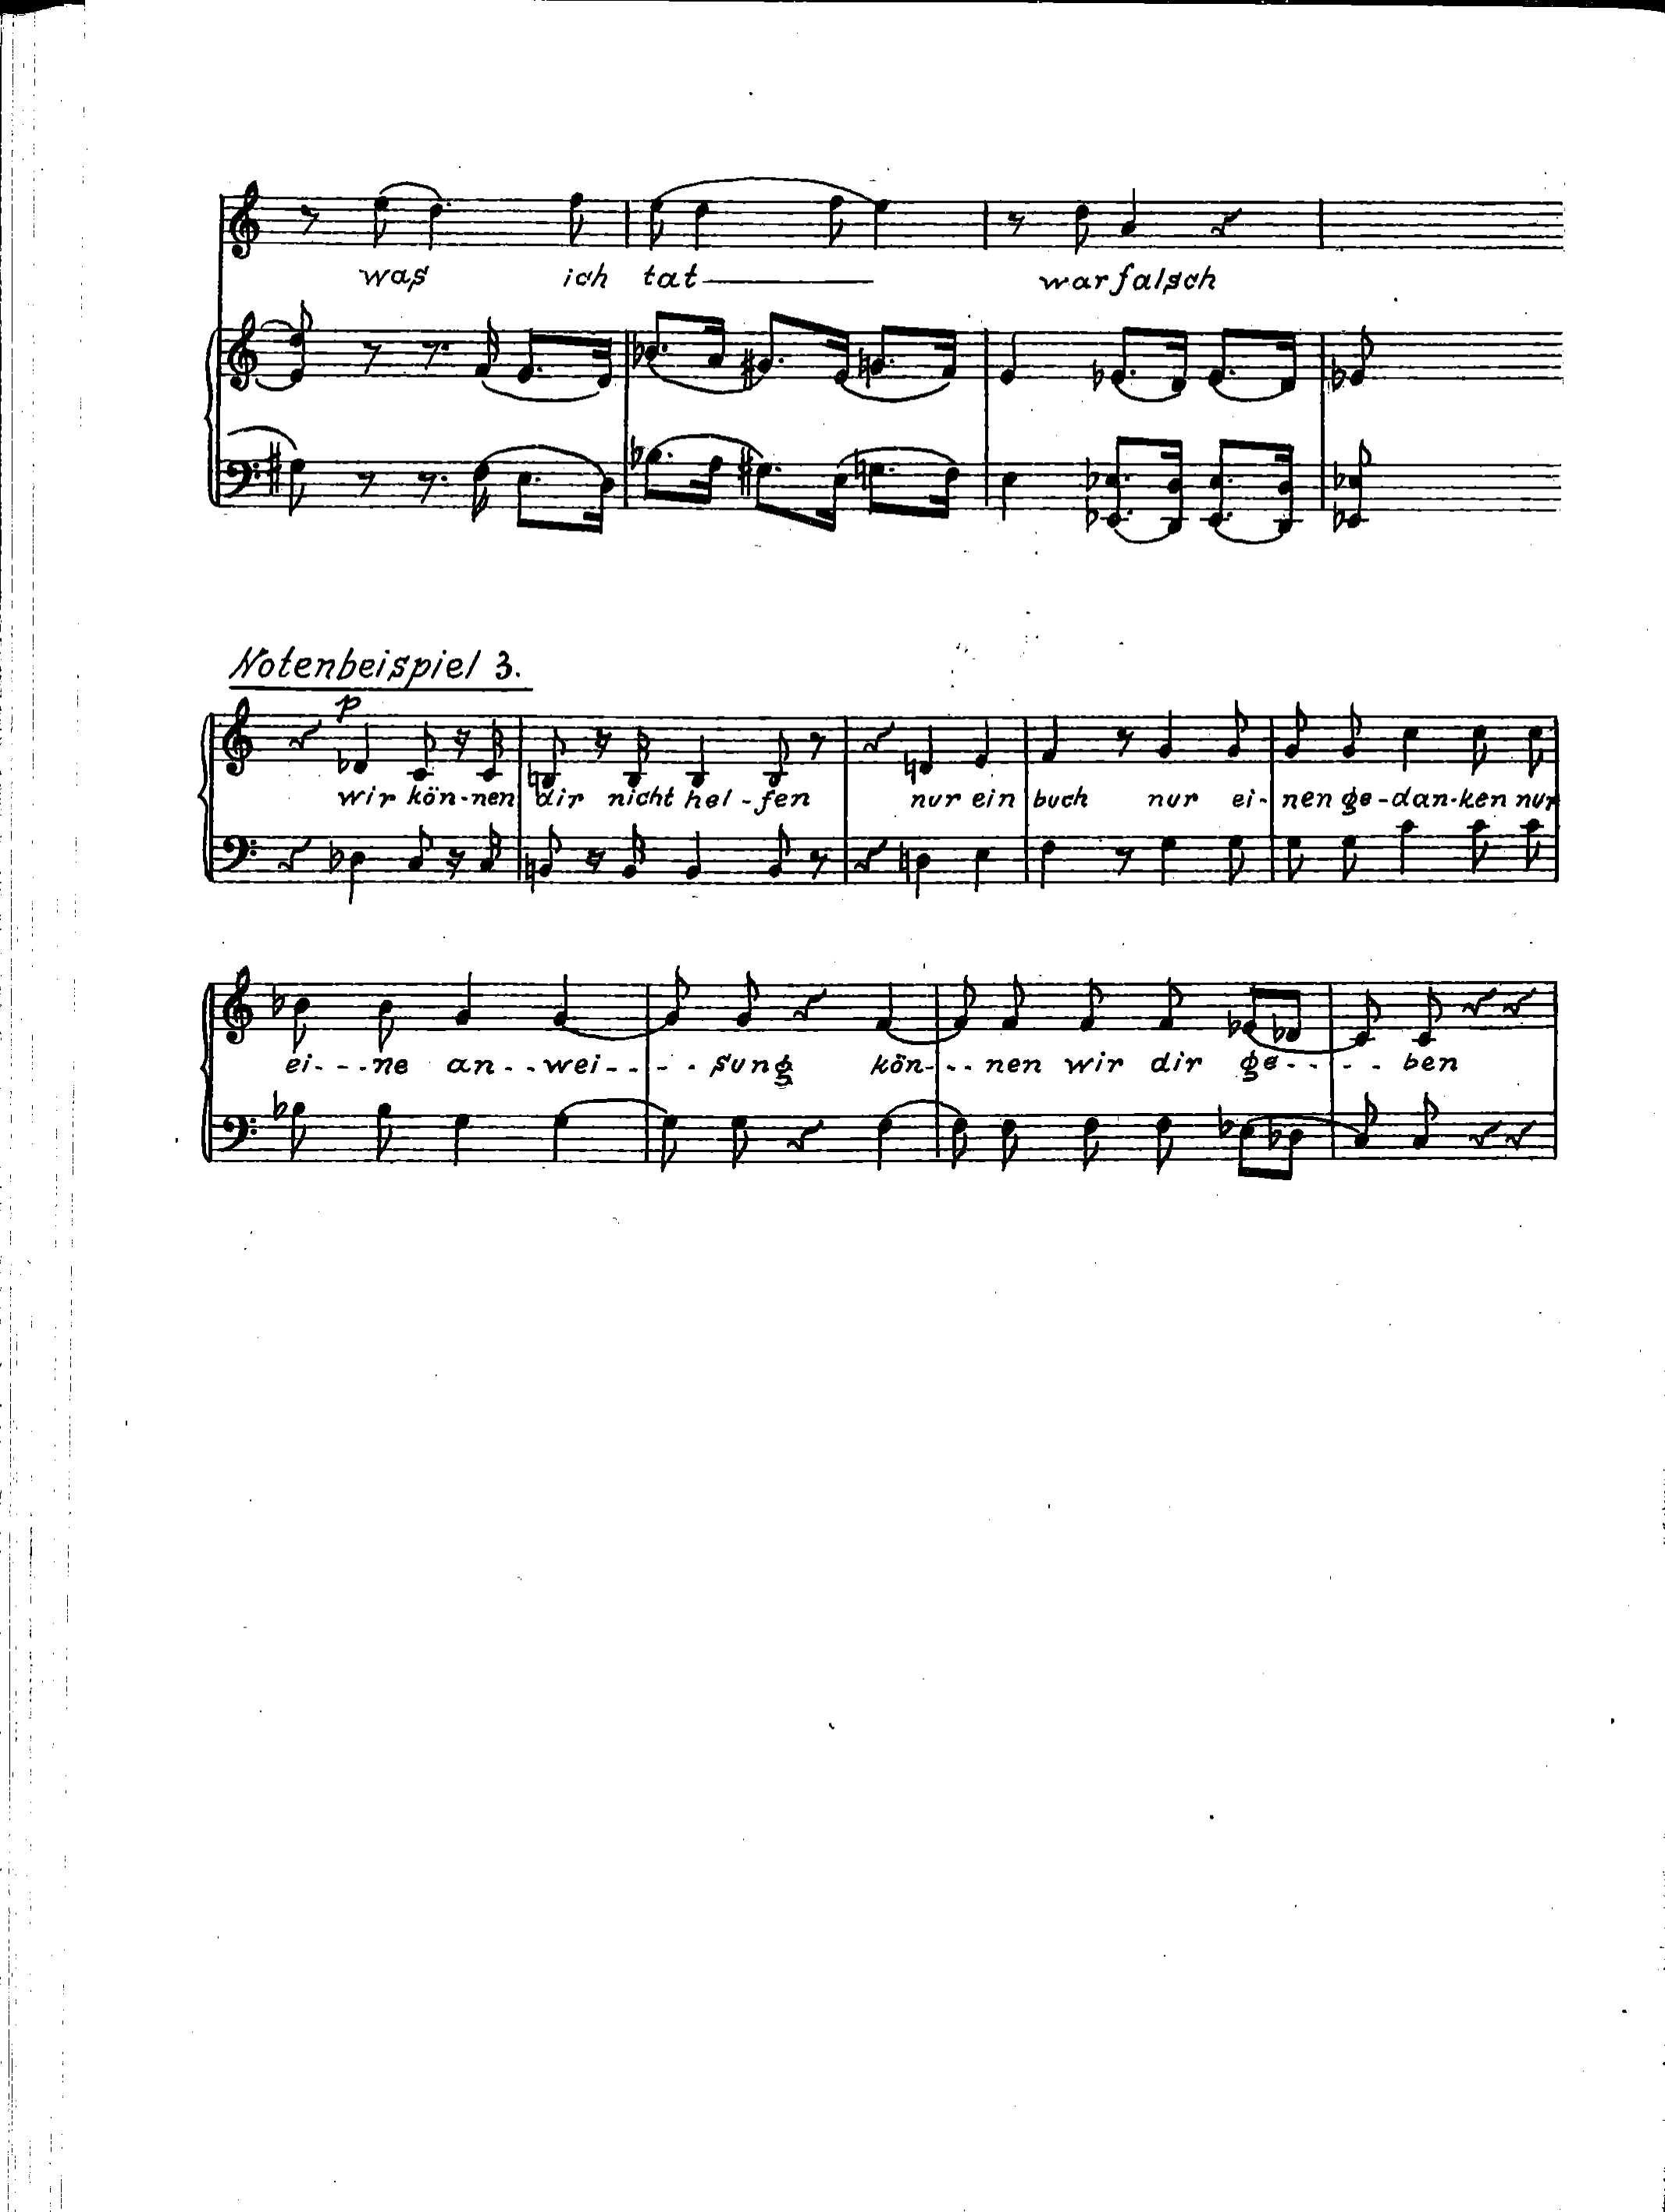 was ich tat war falsch
Notenbeispiel 3.
p
wir kön-nen dir nicht hel-fen nur ein buch nur ei-nen ge-dan-ken nur
ei---ne an--wei----sung kön---nen wir dir ge-----ben